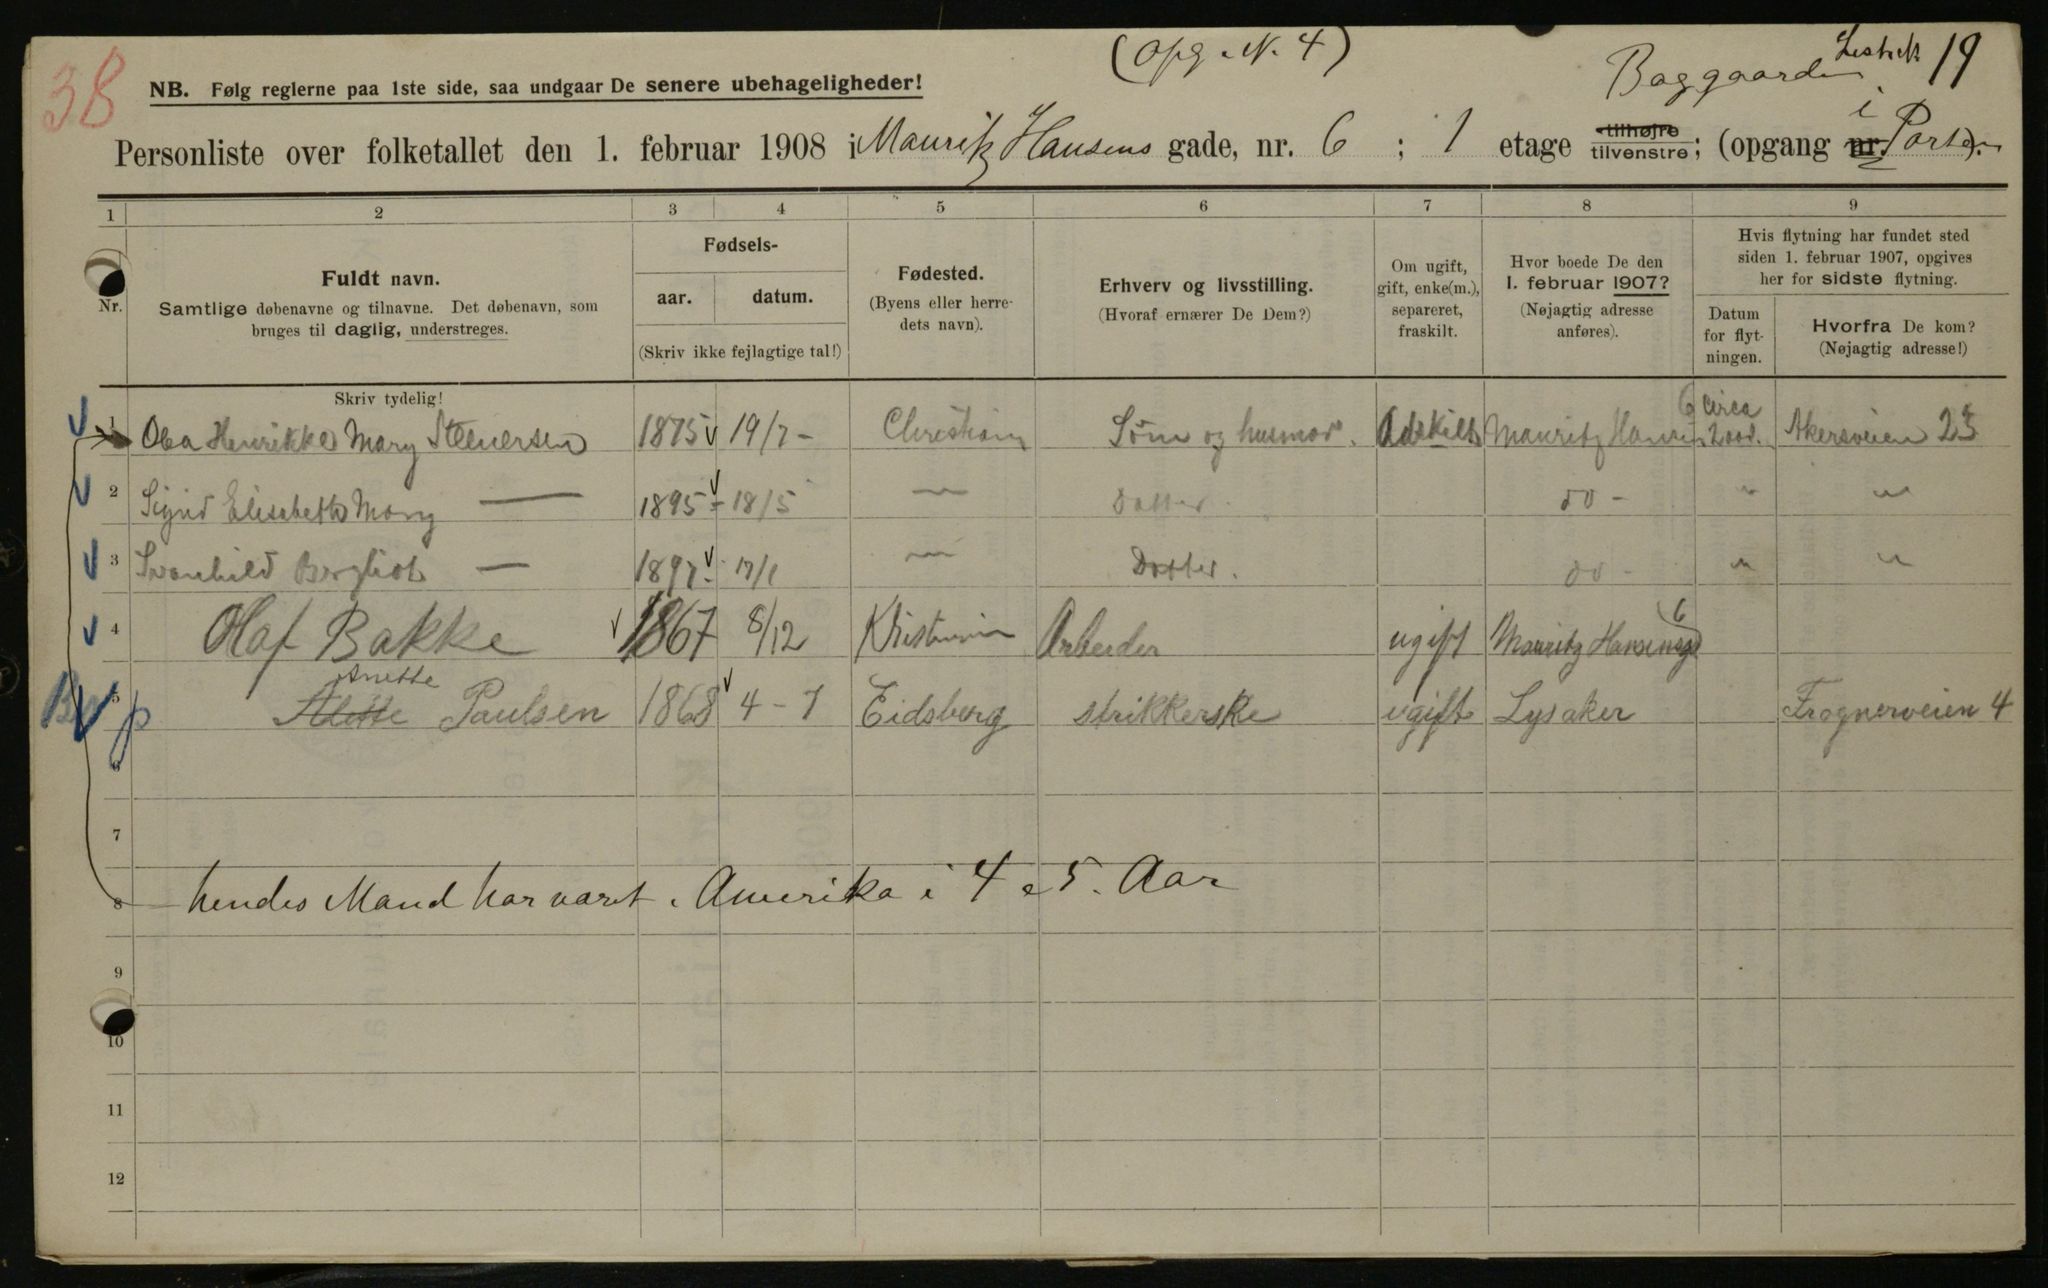 38
(Opg. N. 4)
Baggaarden
19
NB. Følg reglerne paa 1ste side, saa undgaar De senere ubehageligheder!
Personliste over folketallet den 1. februar 1908 i Mauritz Hansens gade, nr. 6 ; 1 etage tilhøjre tilvenstre; (opgang nr. i Porten).
1 2 3 4 5 6 7 8 9
Nr.
Fuldt navn.
Samtlige døbenavne og tilnavne. Det døbenavn, som
bruges til daglig, understreges.
Skriv tydelig!
Fødsels-
aar. datum.
(Skriv ikke fejlagtige tal!)
Fødested.
(Byens eller herre-
dets navn).
Erhverv og livsstilling.
(Hvoraf ernærer De Dem?)
Om ugift,
gift, enke(m.),
separeret,
fraskilt.
Hvor boede De den
1. februar 1907?
(Nøjagtig adresse
anføres).
Hvis flytning har fundet sted
siden 1. februar 1907, opgives
her for sidste flytning.
Datum
for flyt-
ningen.
Hvorfra De kom?
(Nøjagtig adresse!)
1 Olea Henrikke Mary Steenersen 1875 19/7 - Christiania Søm og husmor. Adskilt Mauritz Hansen 6 circa 2 aar. Akersveien 25
2 Sigrid Elisabeth Mary — 1895 - 18/5 — Datter. do - " "
3 Svanhild Bergliot — 1897 - 17/1 — Datter. do - " "
4 Olaf Bakke 1867 8/12 Kristiania Arbeider ugift Mauritz Hansensgd 6
5 Alette Anette Paulsen 1868 4-7 Eidsberg strikkerske ugift Lysaker Frognerveien 4
6
7
8 hendes Mand har været i Amerika i 4 a 5. Aar
9
10
11
12